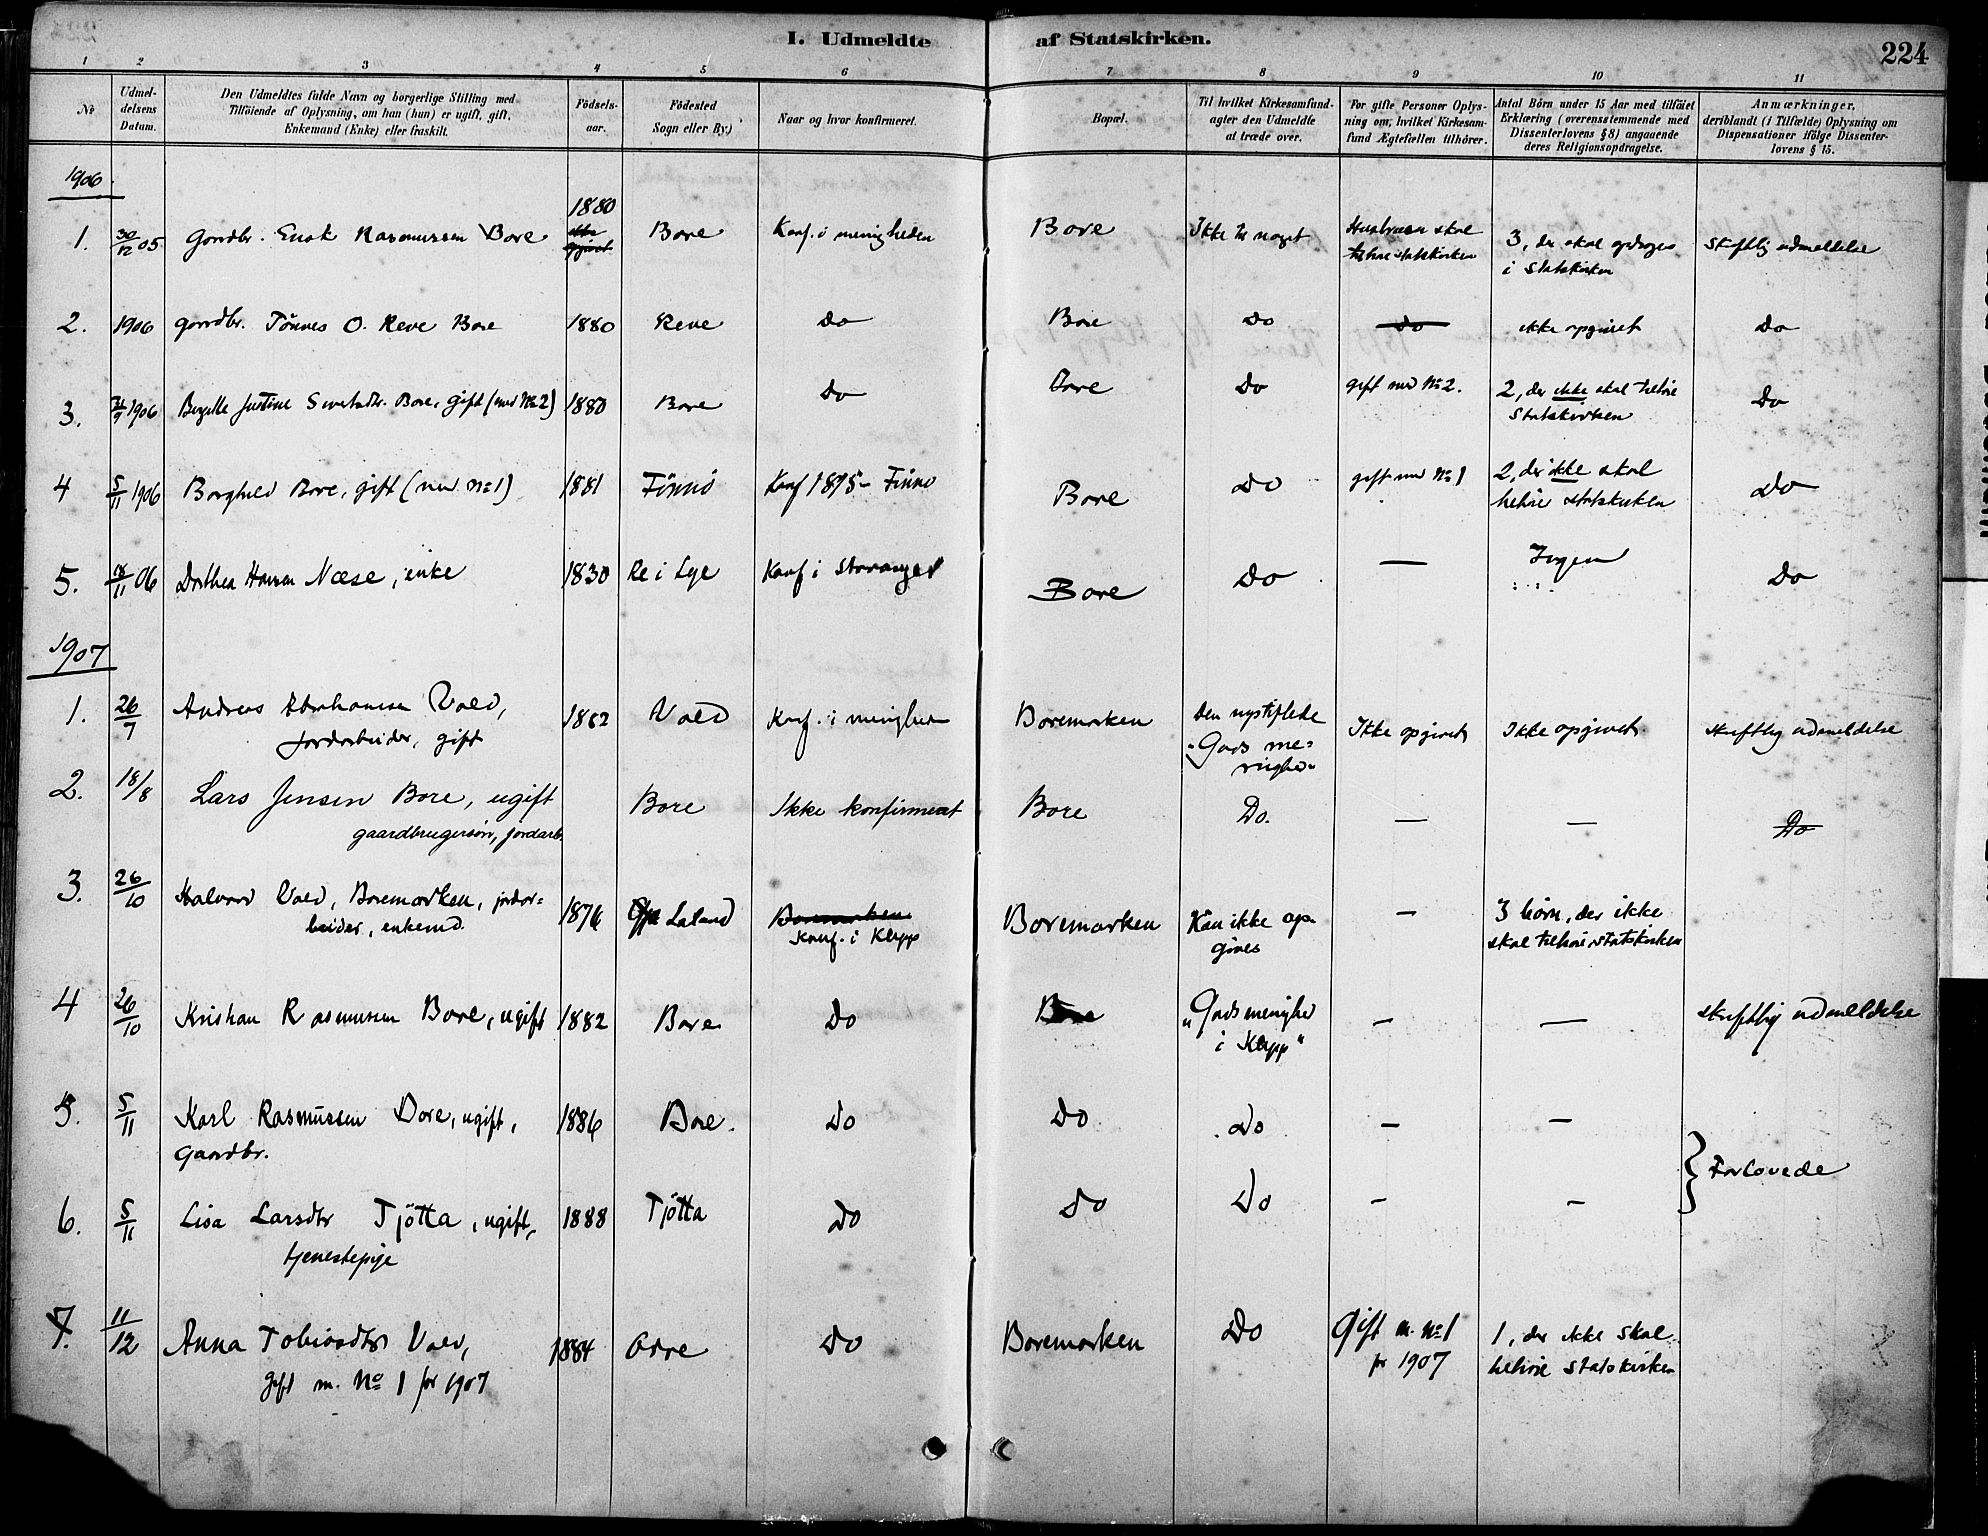 I. Udmeldte af Statskirken. 224
1 2 3 4 5 6 7 8 9 10 11
No
Udmel-
delsens
Datum.
Den Udmeldtes fulde Navn og borgerlige Stilling med
Tilföiende af Oplysning, om han (hun) er ugift, gift,
Enkemand (Enke) eller fraskilt.
Födsels-
aar.
Födested
Sogn eller By.)
Naar og hvor konfirmeret.
Bopæl.
Til hvilket Kirkesamfund-
agter den Udmeldte
at træde over.
For gifte Personer Oplys-
ning om, hvilket Kirkesam-
fund Ægtefællen tilhörer.
Antal Börn under 15 Aar med tilföiet
Erklæring (overensstemmende med
Dissenterlovens § 8) angaaende
deres Religionsopdragelse.
Anmærkninger,
deriblandt (i Tilfælde) Oplysning om
Dispensationer ifölge Dissenter-
lovens § 15.
1906
1. 30/12 05 Gaardbr. Enok Rasmussen Bore 1880 Bore Konf. i menigheden Bore Ikke til noget Husbruen skal
tilhøre statskirken
3, der skal opdrages
i Statskirken
Skriftlig udmeldelse
2. 1906 gaardbr. Tönnes O. Reve Bore 1880 Reve Do Bore Do Do ikke opgivet Do
3. 1906 Justine Bore, gift (med No 2) 1880 Bore Do Bore Do gift med No 2. 2, der ikke skal tilhöre
Statskirken
Do
4 5/11 1906 Borghild Bore, gift (med No 1) 1881 Finnö Konf 1895 Finnö Bore Do gift med No 1 2, der ikke skal
tilhöre statskirken
Do
5. 18/11 06 Dorthea Hansen Næse, enke 1830 Re i Lye Konf i Stavanger Bore Do — Ingen Do
1907
1. 26/7 Andreas Abrahamsen Vold,
jordarbeider, gift
1862 Vold Konf. i menigheden Boremarken Den nystiftede
"Guds me-
nighed"
Ikke opgivet Ikke opgivet Skriftlig udmeldelse
2. 18/8 Lars Jensen Bore, ugift
gaardbrugersön, jordarb.
Bore Ikke konfirmeret Bore Do. — — Do
3. 26/10 Halvard Vold, Boremarken, jordar-
beider, enkemd.
1876 Laland Boremarken
Konf. i Klepp
Boremarken Kan ikke op-
gives
— 3 börn, der ikke
skal tilhöre statskirken
4 26/10 Kristian Rasmussen Bore, ugift 1882 Bore Do Bore "Guds menighed
i Klepp"
— — Skriftlig udmeldelse
5. 5/11 Karl Rasmussen Bore, ugift,
Gaardbr.
1886 Bore. Do Do Do — —
Forlovede
6. 5/11 Lisa Larsdtr Tjötta, ugift,
tjenestepige
1888 Tjötta Do Do Do — —
7. 11/12 Anna Tobiasdtr Vold,
gift m. No 1 for 1907
1884 Orre Do Boremarken Do Gift m. No 1
for 1907
1, der ikke skal
tilhöre Statskirken